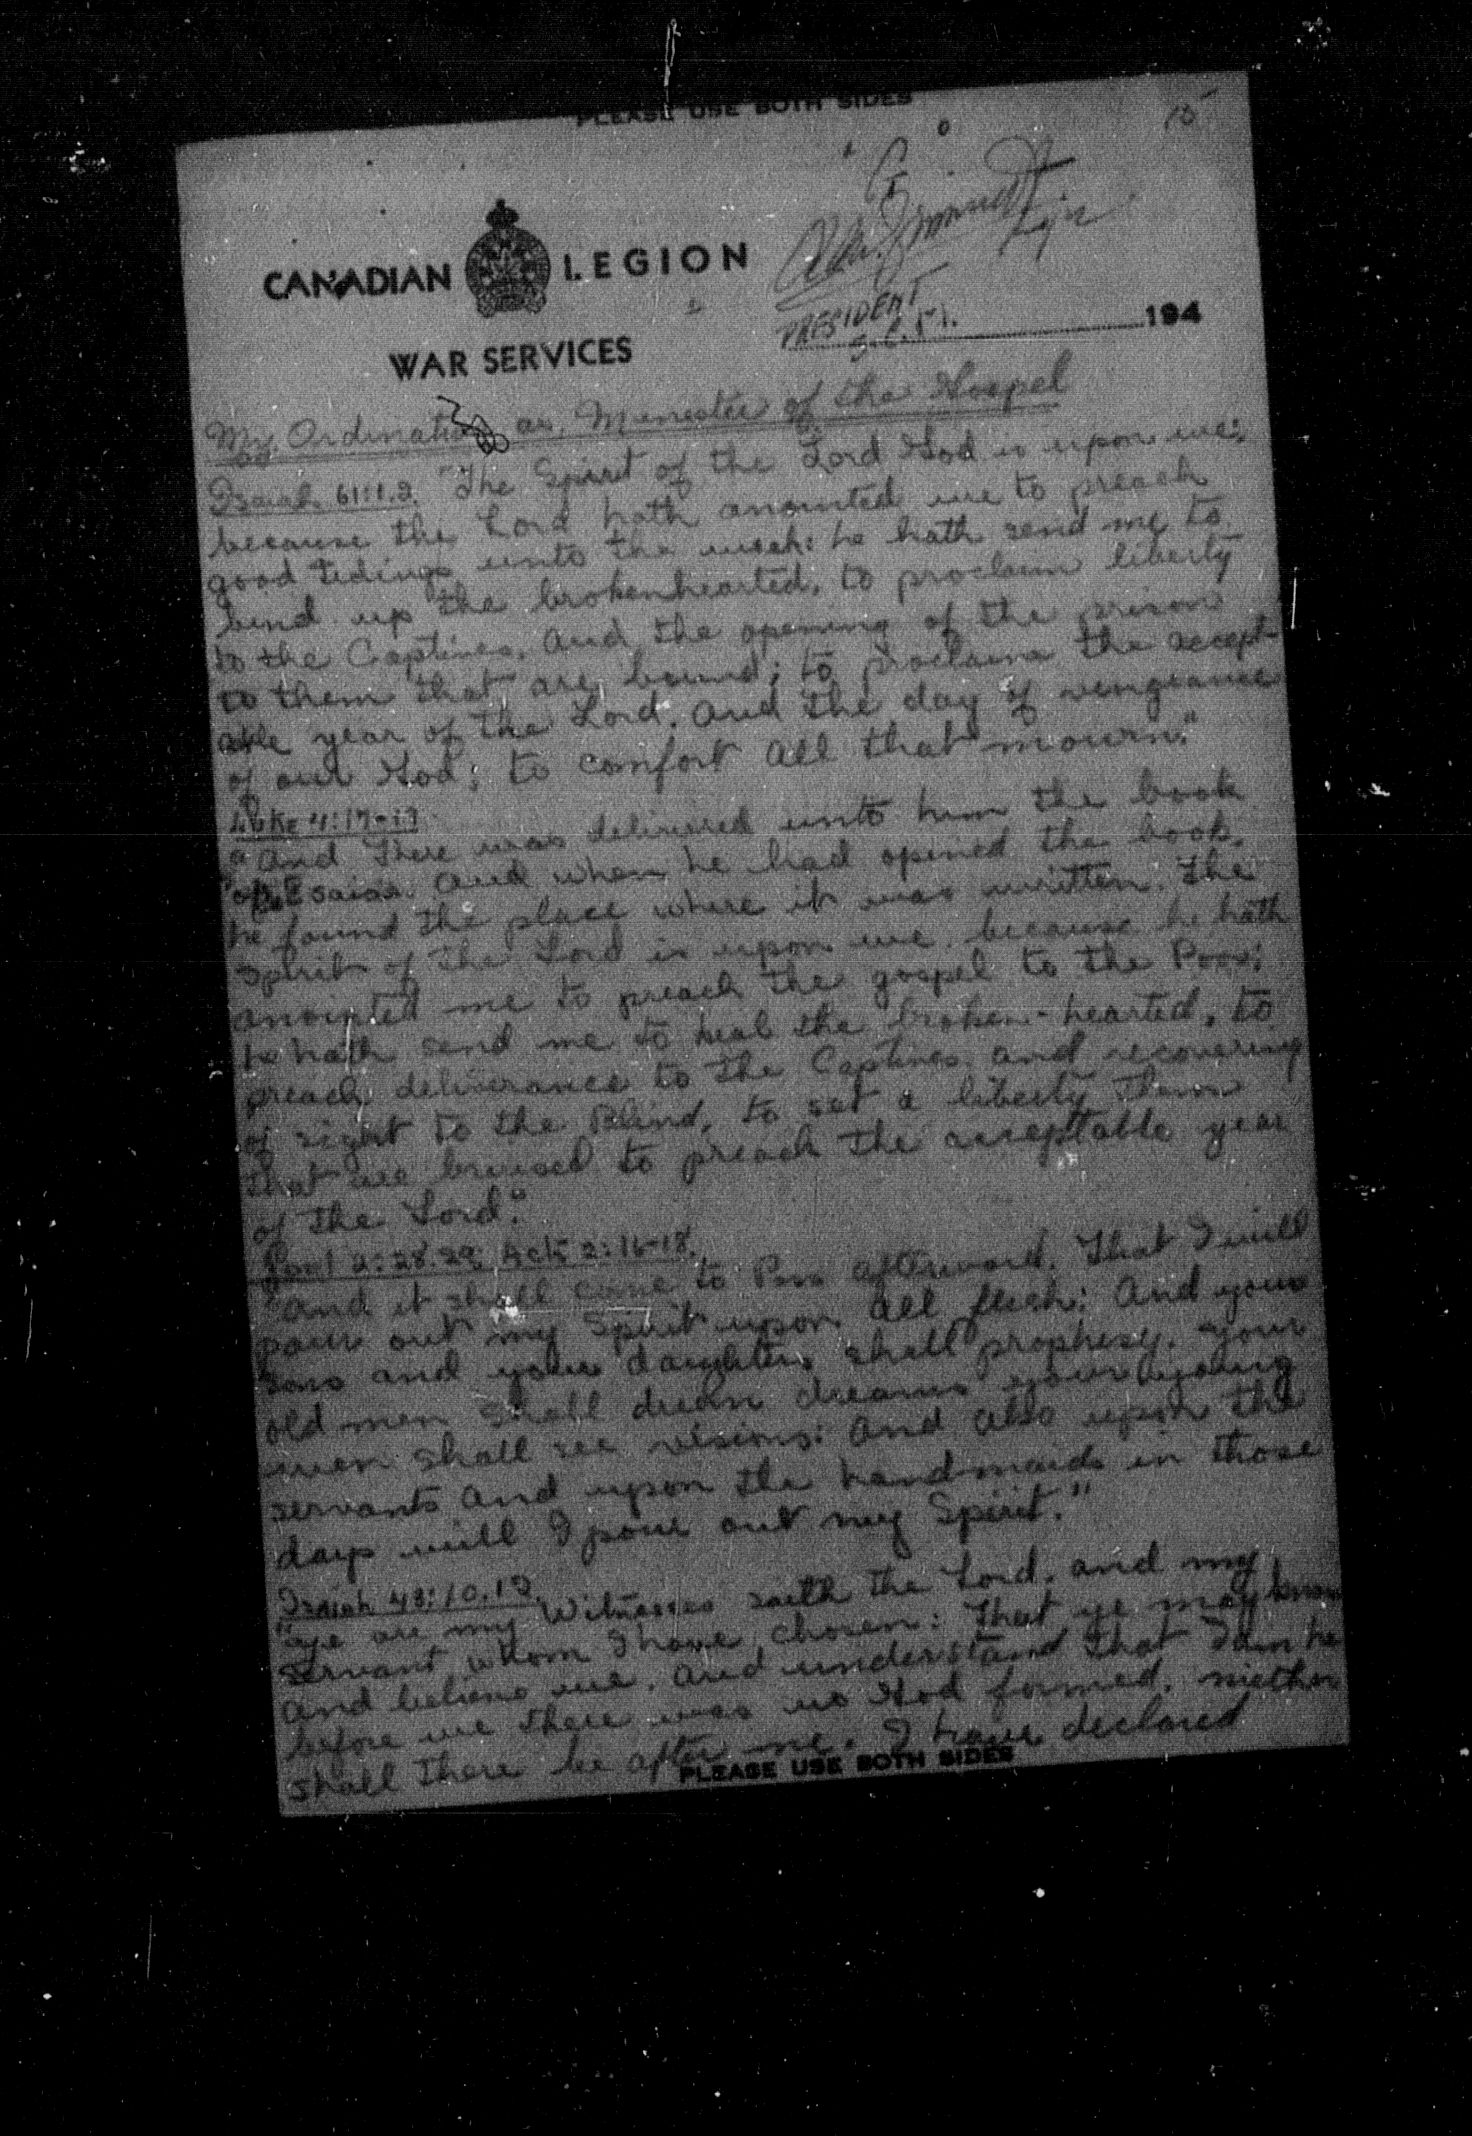 PLEASE USE BOTH SIDES
15
CANADIAN LEGION
WAR SERVICES
PRESIDENT
194
My Ordination as Minister of the Gospel
Isaiah 61:1.2. "The Spirit of the Lord God is upon me:
because the Lord hath anointed me to preach
good tidings unto the meek: he hath send me to
bind up the brokenhearted, to proclaim liberty
to the Captives, and the opening of the prison
to them that are bound; to proclaim the accept-
able year of the Lord, and the day of vengeance
of our God; to comfort all that mourn."
Luke 4:17-19
"And there was delivered unto him the book
of Esaias. and when he had opened the book,
he found the place where it was written. The
Spirit of the Lord is upon me, because he hath
anointed me to preach the gospel to the Poor;
he hath send me to heal the broken-hearted, to
preach deliverance to the Captives and recovering
of sight to the Blind, to set a liberty them
that are bruised to preach the acceptable year
of the Lord."
2:28.29 Act 2:16-18.
"And it shall come to Pass afterward. That I will
pour out my Spirit upon all flesh: And your
sons and your daughters shall prophesy. your
old men shall dream dreams your young
men shall see visions: and also upon the
servants and upon the handmaids in those
days will I pour out my Spirit."
Isaiah 43:10.12
"Ye are my Witnesses saith the Lord. and my
servant whom I have chosen: That ye may know
and believe me. and understand that I am he
before me there was no God formed. neither
shall there be after me. I have declared
PLEASE USE BOTH SIDES